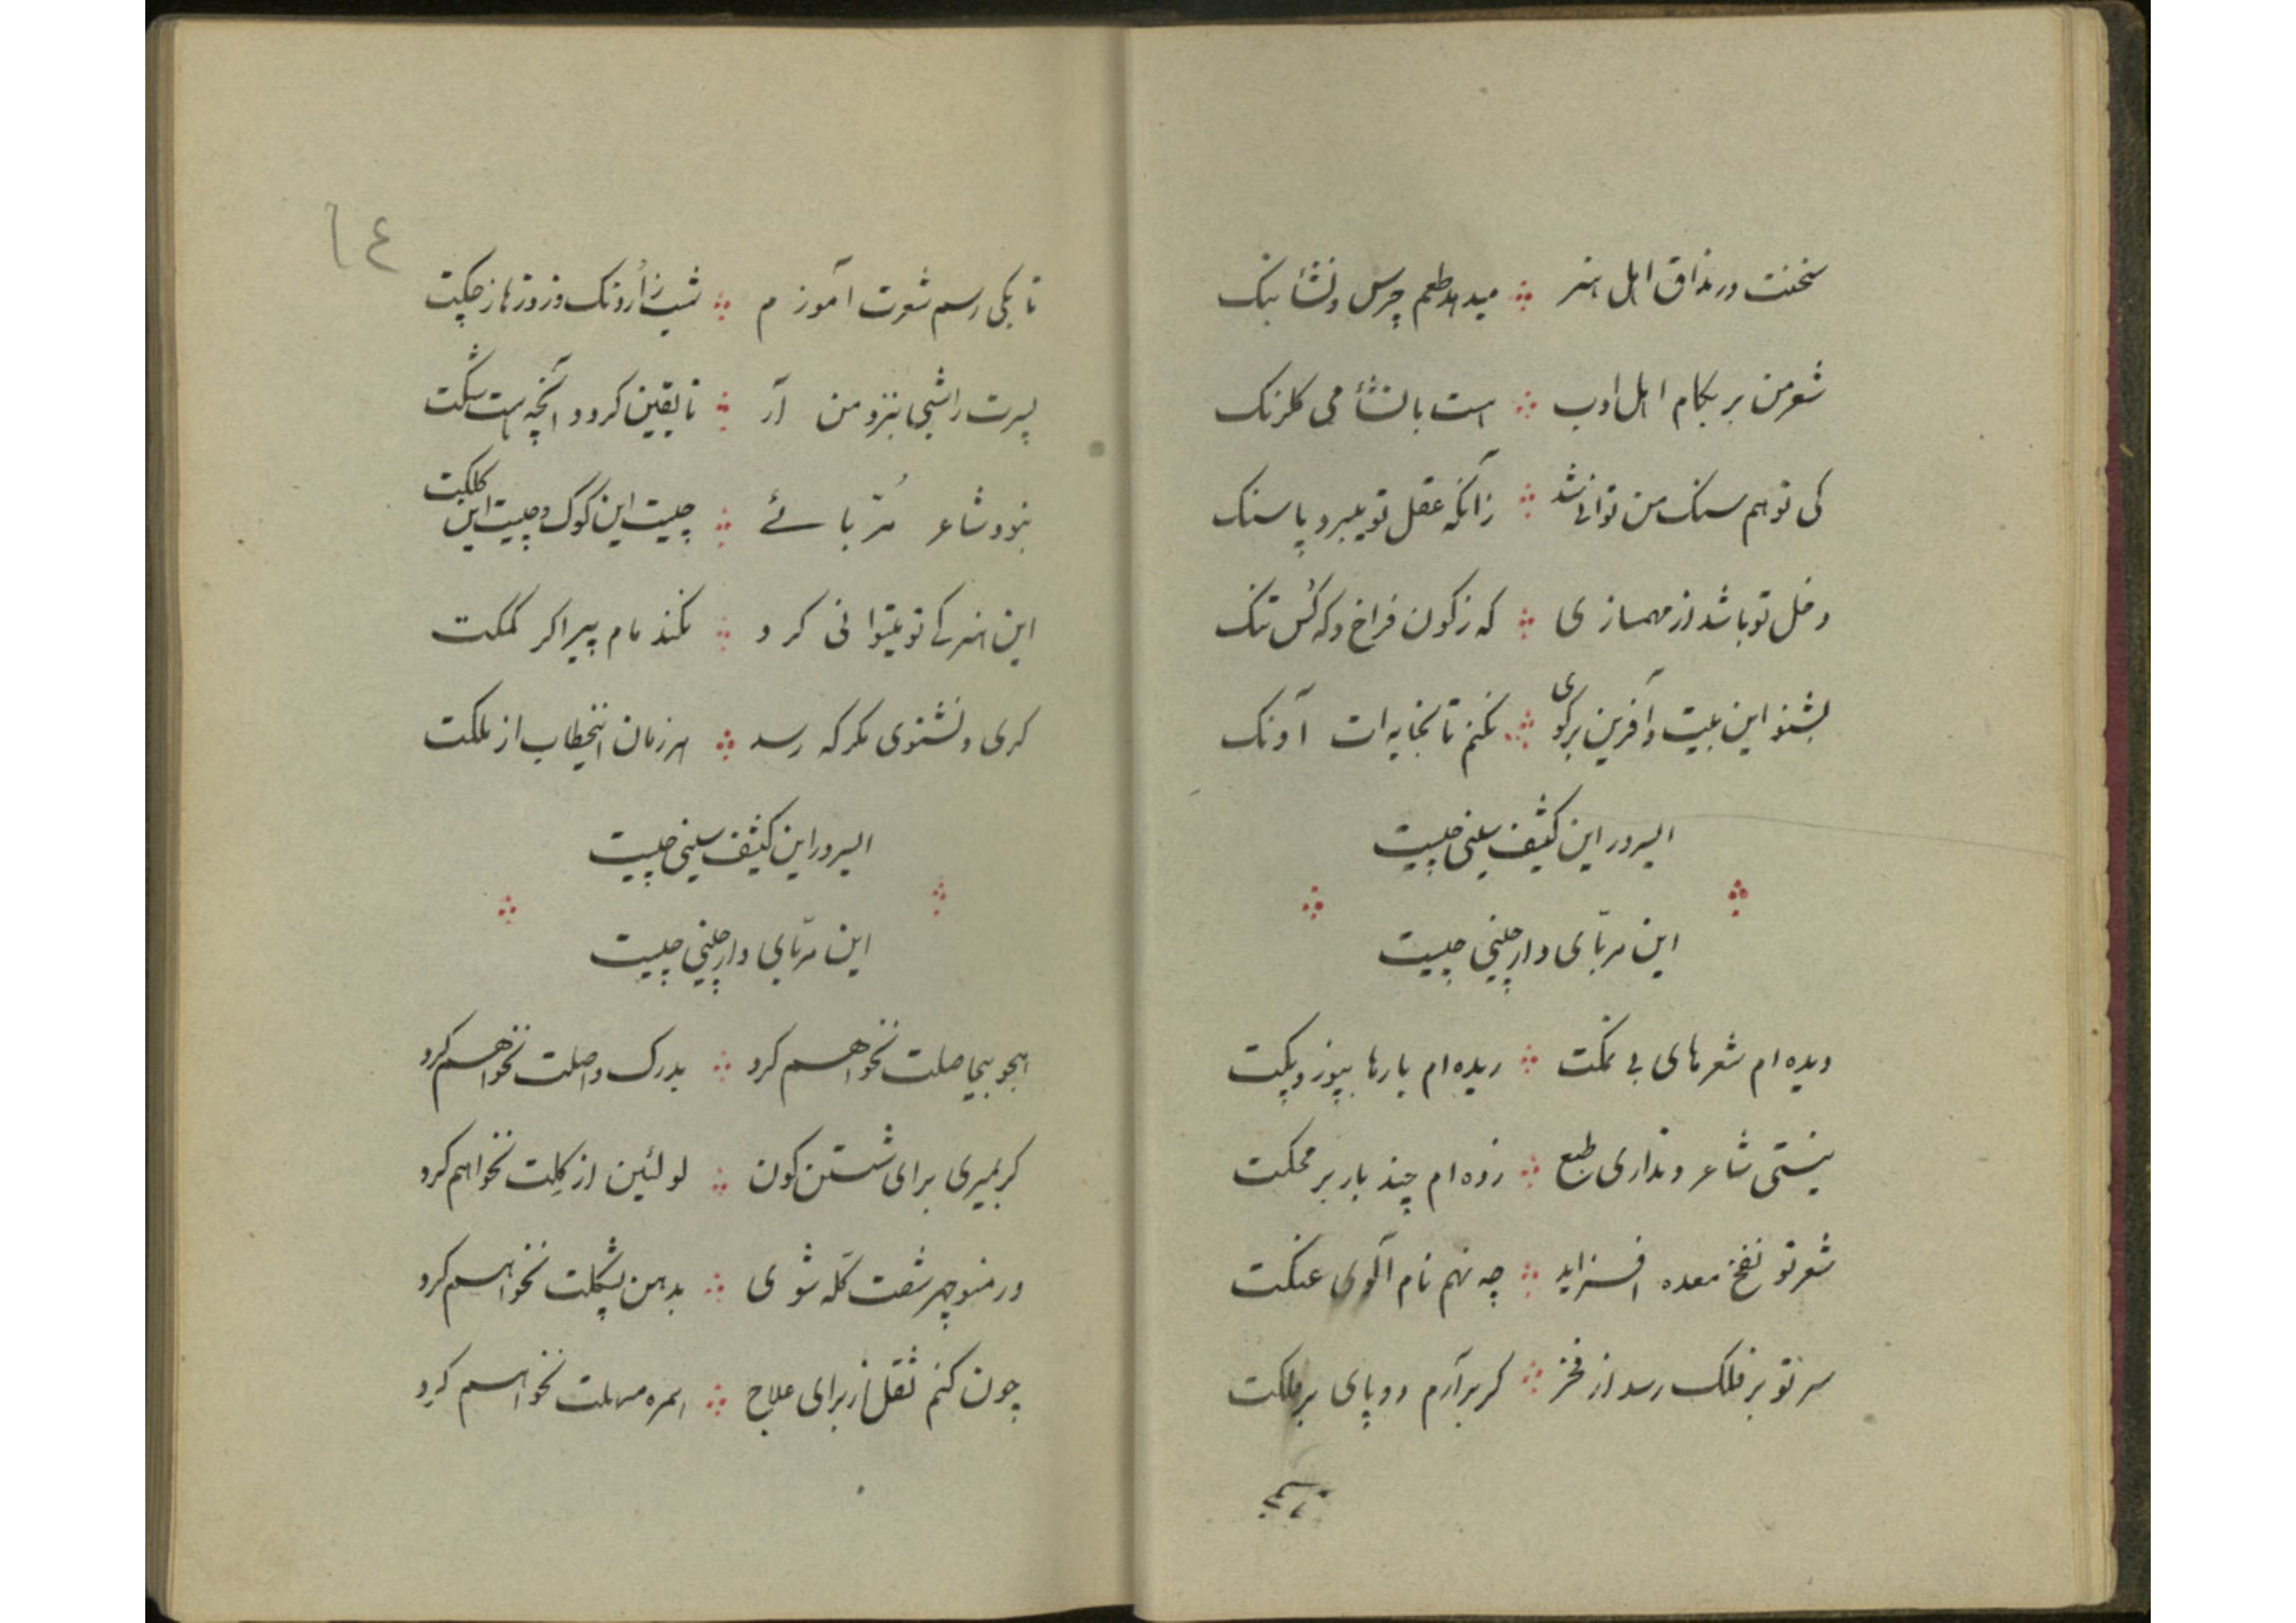 سخنت در مذاق اهل هنر میدهد طعم چرس و نشأ بنک
شعر من بر بکام اهل ادب هست با نشأ می کلرنک
کی تو هم سنک من توانی شد زانکه عقل تو میبرد پاسنک
دخل تو باشد از مهمسازی که ز کون فراخ و که کس تنک
بشنو این بیت و آفرین برکوی نکنم تا بخایه ات آونک
ایسرور این کثیف سینی چیست
این مربّای دارچینی چیست
دیده ام شعرهای بی نمکت ریده ام بارها بپوز و پکت
نیستی شاعر و نداری طبع زده ام چند بار بر محکت
شعر تو نفخ معده افزاید چه نهم نام آلوی عنکت
سر تو بر فلک رسد از فخر کر برآرم دو پای بر فلکت
۱٤
تا بکی رسم شعرت آموزم شب ز اُردنک و روزها ز چکت
پسرت را شبی بنزد من آر تا یقین کردد آنچه هست شکت
نبود شاعر مُربّائے چیست این کوک و چیست این کلکت
این هنر کے تو میتوانی کرد نکند مام پیر اکر کمکت
کری و نشنوی مکر که رسد هر زمان اینخطاب از ملکت
ایسرور این کثیف سینی چیست
این مربّای دارچینی چیست
هجو بیجا صلت نخواهم کرد بدرک واصلت نخواهم کرد
کر بمیری برای شستن کون لولئین از کلت نخواهم کرد
ور منوچهر شصت کلّه شوی بدهن پشکلت نخواهم کرد
چون کنم ثقل از برای علاج همره مسهلت نخواهم کرد